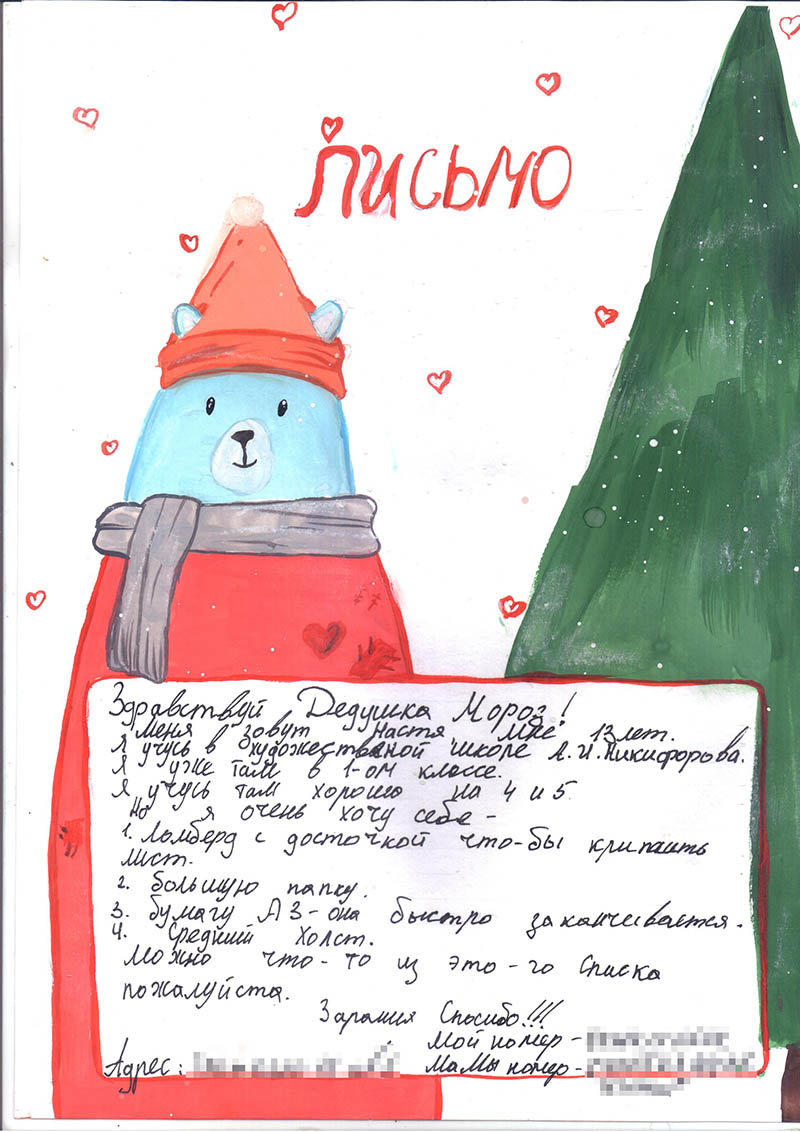 письмо
Здравствуй Дедушка Мороз!
Меня зовут Настя мне 13 лет.
Я учусь в художественой школе А.И.Никифорова.
Я уже там в 1-ом классе.
Я учусь там хорошо на 4 и 5
Но я очень хочу себе -
1. Ломберд с досточкой что-бы крипашть
лист.
2. Большую папку.
3. бумагу А3-она быстро заканчивается.
4. Средний холст.
Можно что-то из это-го списка
пожалуйста.
Зарания Спосибо!!!
Мой номер -
Адрес: Мамы номер -